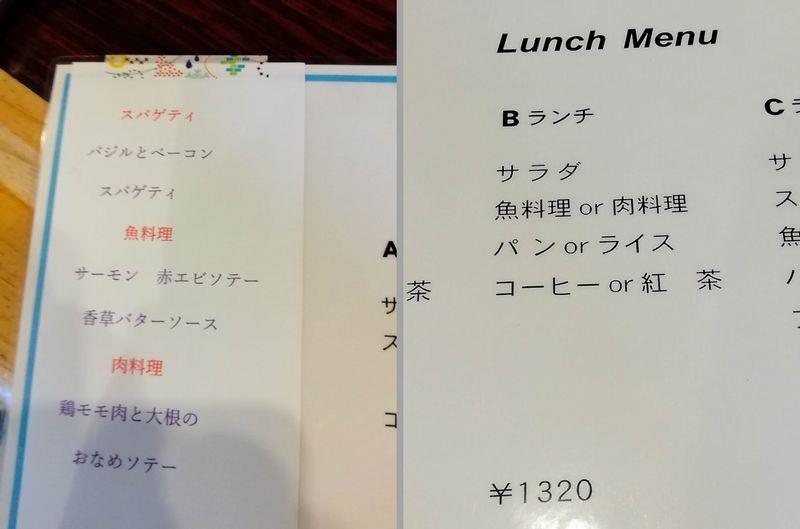 スパゲティ
バジルとベーコン
スパゲティ
魚料理
サーモン　赤エビソテー
香草バターソース
肉料理
鶏モモ肉と大根の
おなめソテー
A
サ
ス
コ
Lunch Menu
B ランチ
サラダ
魚料理 or 肉料理
パン or ライス
コーヒー or 紅　茶
¥1320
茶
C ラ
サ
ス
魚
パ